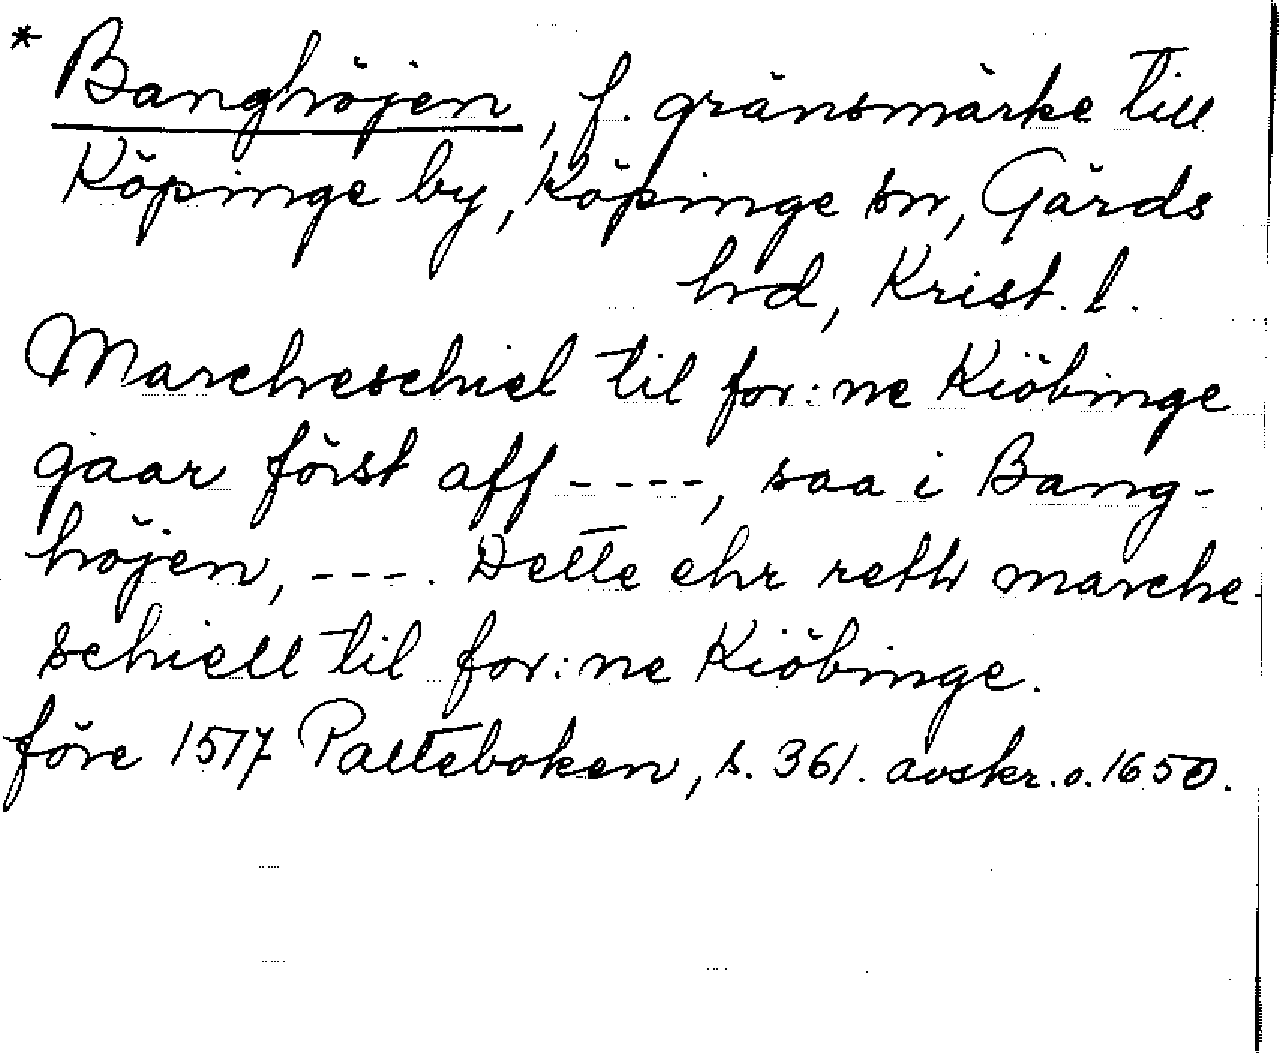 * Banghöjen, f. gränsmärke till
Köpinge by, Köpinge sn, Gärds
hrd, Krist. l.
Marcheschiel til for:ne Kiöbinge
gaar först aff ----, saa i Bang-
höjen, ---. Dette ehr reth marche-
schiell til for:ne Kiöbinge.
före 1517 Palteboken, s. 361. avskr. o. 1650.